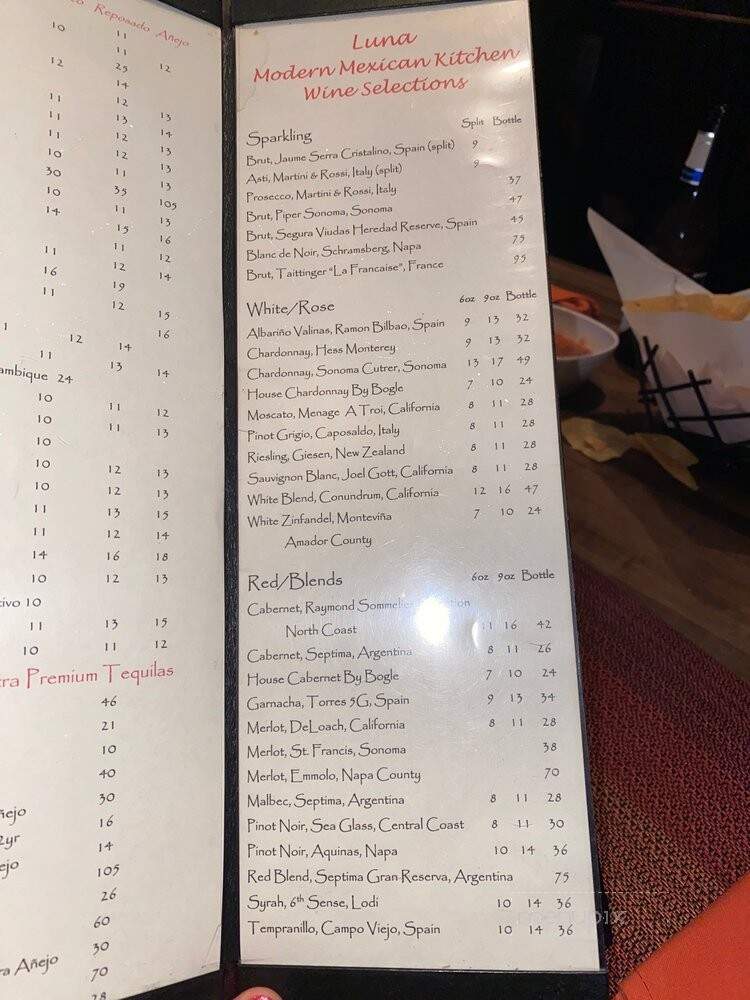 Reposado Añejo
10 11
11
12 25 12
14
11 12
11 13 13
11 12 14
10 12 13
30 11 13
10 35 13
14 11 105
15 13
11 11 16
16 12 12
11 19 14
12
15
12 16
11 14
13 14
24
10
10 11 12
10 11 13
10 12 13
10 12 13
11 13 15
11 12 14
14 16 18
10 12 13
10
11 13 15
10 11 12
Premium Tequilas
46
21
10
40
30
16
2yr 14
105
26
60
30
Añejo 70
28
Luna
Modern Mexican Kitchen
Wine Selections
Sparkling Split Bottle
Brut, Jaume Serra Cristalino, Spain (split) 9
Asti, Martini & Rossi, Italy (split) 9
Prosecco, Martini & Rossi, Italy 37
Brut, Piper Sonoma, Sonoma 47
Brut, Segura Viudas Heredad Reserve, Spain 45
Blanc de Noir, Schramsberg, Napa 75
Brut, Taittinger "La Francaise", France 95
White/Rose 6oz 9oz Bottle
Albariño Valinas, Ramon Bilbao, Spain 9 13 32
Chardonnay, Hess Monterey 9 13 32
Chardonnay, Sonoma Cutrer, Sonoma 13 17 49
House Chardonnay By Bogle 7 10 24
Moscato, Menage A Troi, California 8 11 28
Pinot Grigio, Caposaldo, Italy 8 11 28
Riesling, Giesen, New Zealand 8 11 28
Sauvignon Blanc, Joel Gott, California 8 11 28
White Blend, Conundrum, California 12 16 47
White Zinfandel, Monteviña 7 10 24
Amador County
Red/Blends 6oz 9oz Bottle
Cabernet, Raymond
North Coast 11 16 42
Cabernet, Septima, Argentina 8 11 26
House Cabernet By Bogle 7 10 24
Garnacha, Torres 5G, Spain 9 13 34
Merlot, DeLoach, California 8 11 28
Merlot, St. Francis, Sonoma 38
Merlot, Emmolo, Napa County 70
Malbec, Septima, Argentina 8 11 28
Pinot Noir, Sea Glass, Central Coast 8 11 30
Pinot Noir, Aquinas, Napa 10 14 36
Red Blend, Septima Gran Reserva, Argentina 75
Syrah, 6th Sense, Lodi 10 14 36
Tempranillo, Campo Viejo, Spain 10 14 36